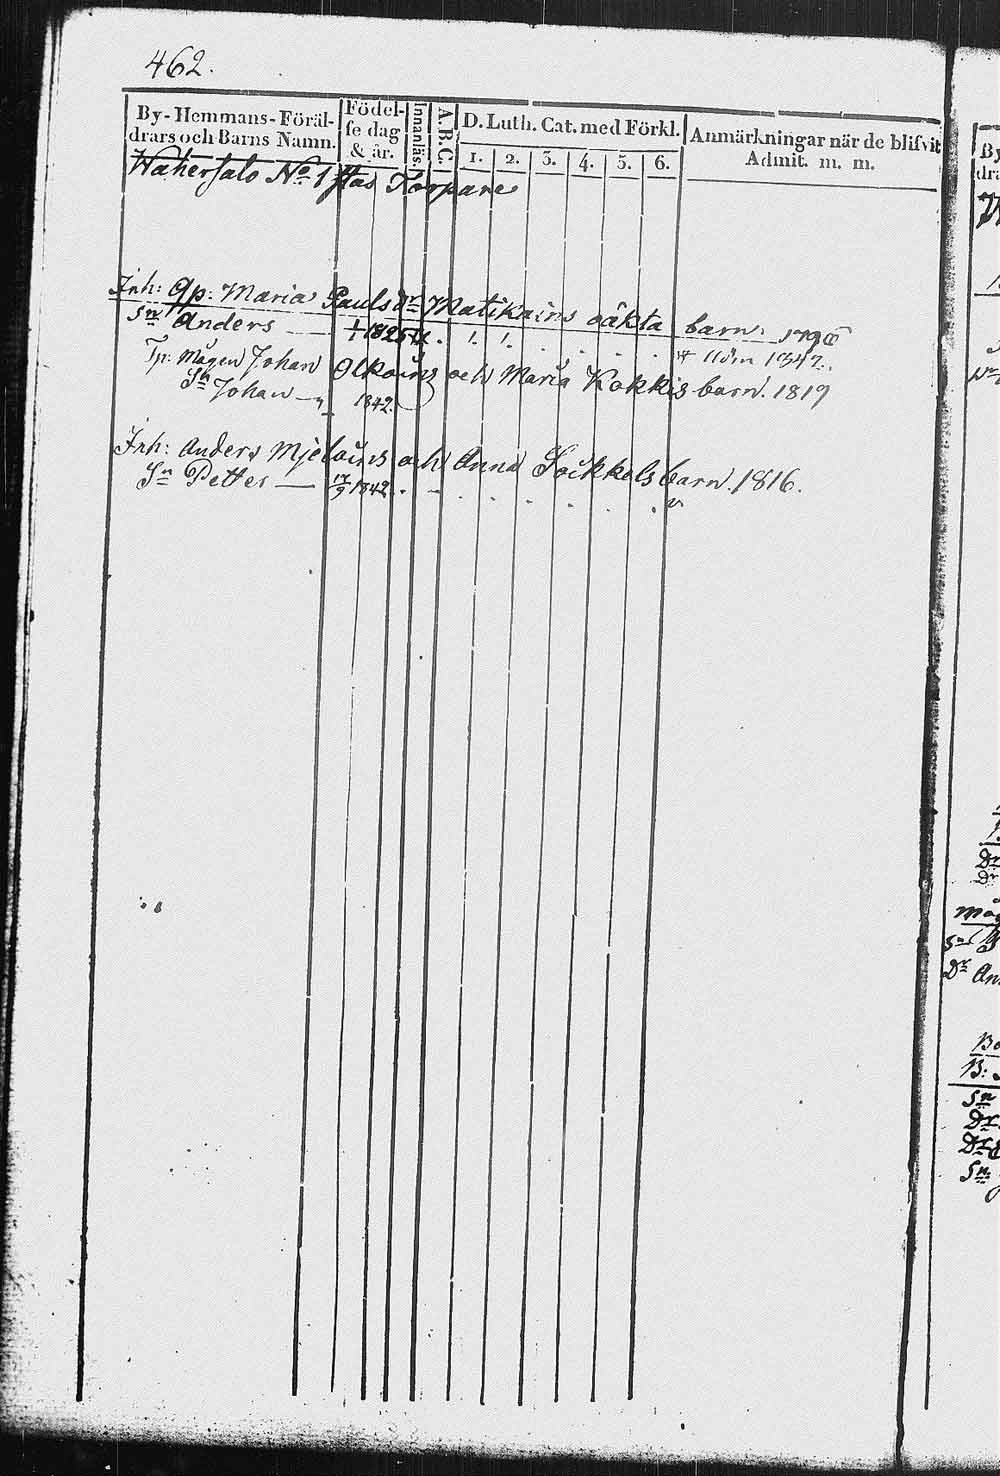 462.
By-Hemmans-Föräl-
drars och Barns Namn.
Födel-
se dag
& år.
Innanläs.
A.B.C.
D. Luth. Cat. med Förkl.
1. 2. 3. 4. 5. 6.
Anmärkningar när de blifvit
Admit. m. m.
Wahersalo No 1 Torpare
Inh: Maria Paulsdr Matikains oäkta barn.
Sn Anders 1825
1842.
Måg Johan Olkoins och Maria Kokkis barn. 1819
Sn Johan 1842.
Inh: Anders Mjeloins och Anna Soikkels barn. 1816.
Sn Petter 1842.
By
dra
Dr
Dr
Sn
Dr An
B:
Sn
Dr
Dr
Sn